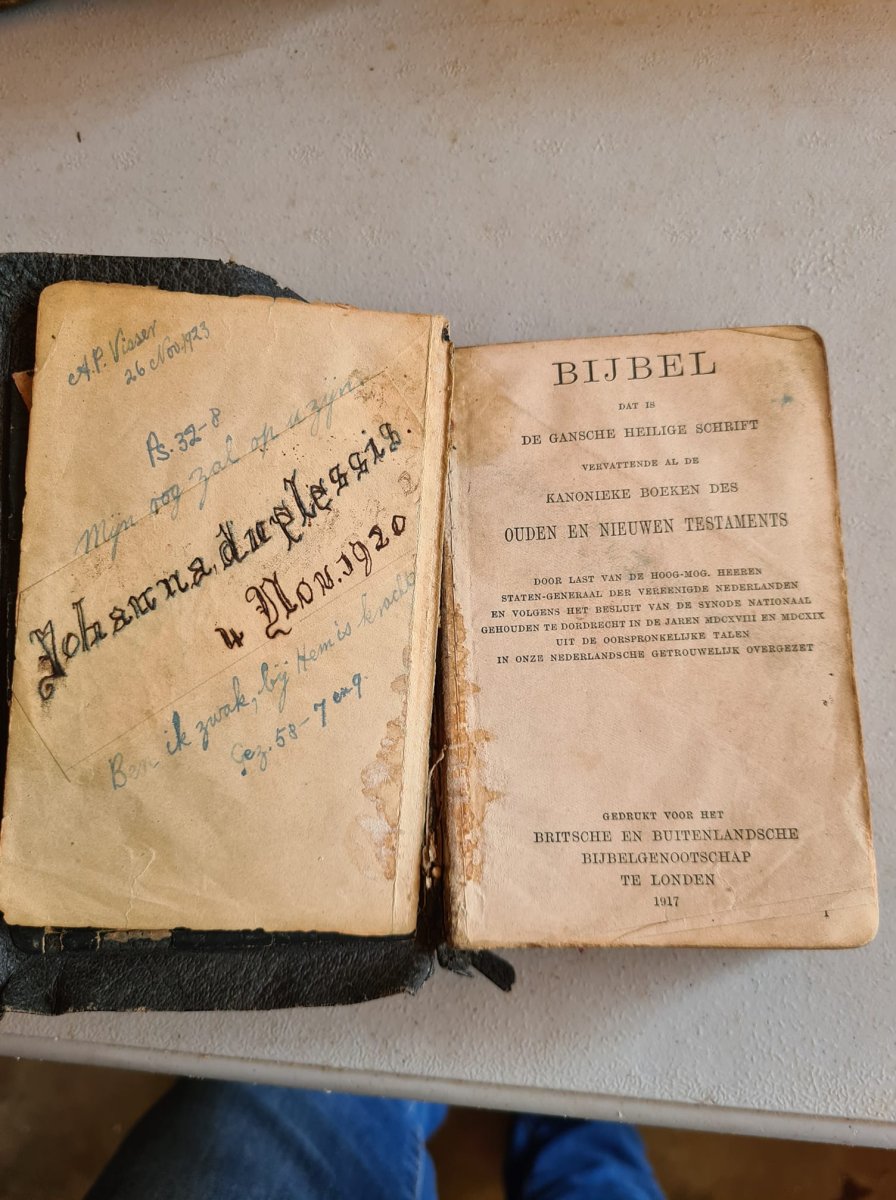 A.P. Visser
26 Nov 1923
Ps. 32-8
Mijn oog zal op u zijn.
Johanna, du plessis.
4 Nov. 1920
Ben ik zwak, bij Hem is kracht
Gez. 58-7 en 9.
BIJBEL
DAT IS
DE GANSCHE HEILIGE SCHRIFT
VERVATTENDE AL DE
KANONIEKE BOEKEN DES
OUDEN EN NIEUWEN TESTAMENTS
DOOR LAST VAN DE HOOG-MOG. HEEREN
STATEN-GENERAAL DER VEREENIGDE NEDERLANDEN
EN VOLGENS HET BESLUIT VAN DE SYNODE NATIONAAL
GEHOUDEN TE DORDRECHT IN DE JAREN MDCXVIII EN MDCXIX
UIT DE OORSPRONKELIJKE TALEN
IN ONZE NEDERLANDSCHE GETROUWELIJK OVERGEZET
GEDRUKT VOOR HET
BRITSCHE EN BUITENLANDSCHE
BIJBELGENOOTSCHAP
TE LONDEN
1917
1